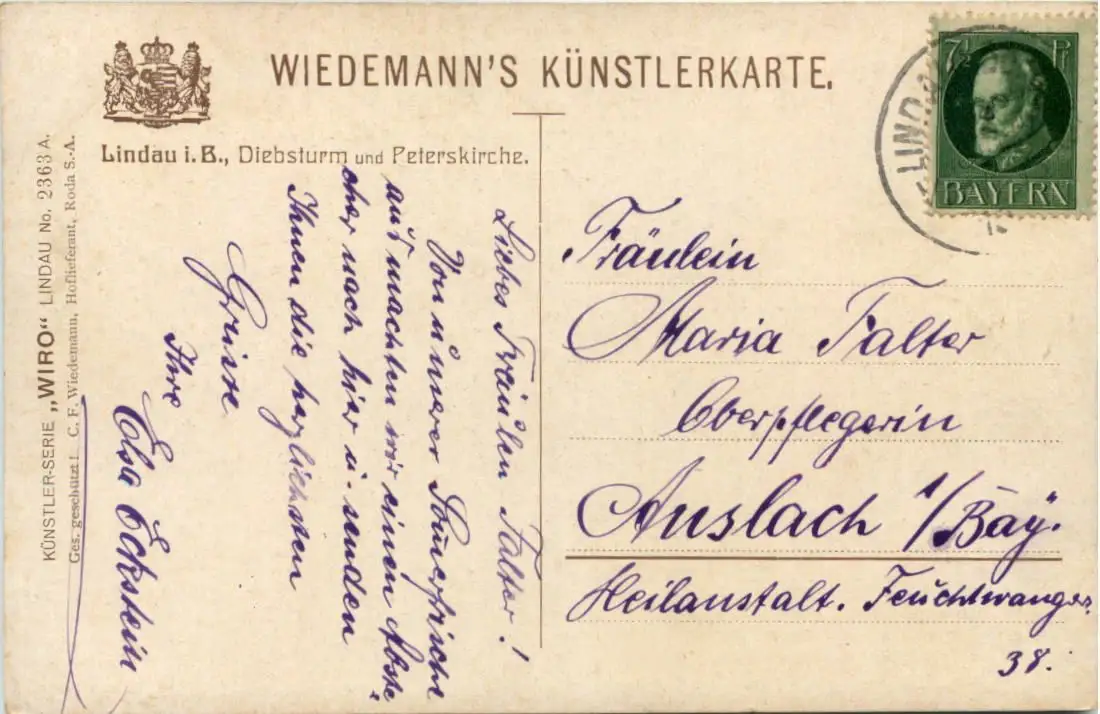 WIEDEMANN'S KÜNSTLERKARTE.
Lindau i. B., Diebsturm und Peterskirche.
KÜNSTLER-SERIE „WIRO“ LINDAU No. 2363 A.
Ges. geschützt! C. F. Wiedemann, Hoflieferant, Roda S.-A.
Liebes Fräulen Falter!
Von unserer
aus machten wir einen Abste
cher nach hier u. senden
Ihnen die herzlichsten
Grüsse
Ihre
Elsa Eckstein
7½ P
BAYERN
LINDAU
Fräulein
Maria Falter
Oberpflegerin
Ansbach i/Bay.
Heilanstalt. Feuchtwanger
38.